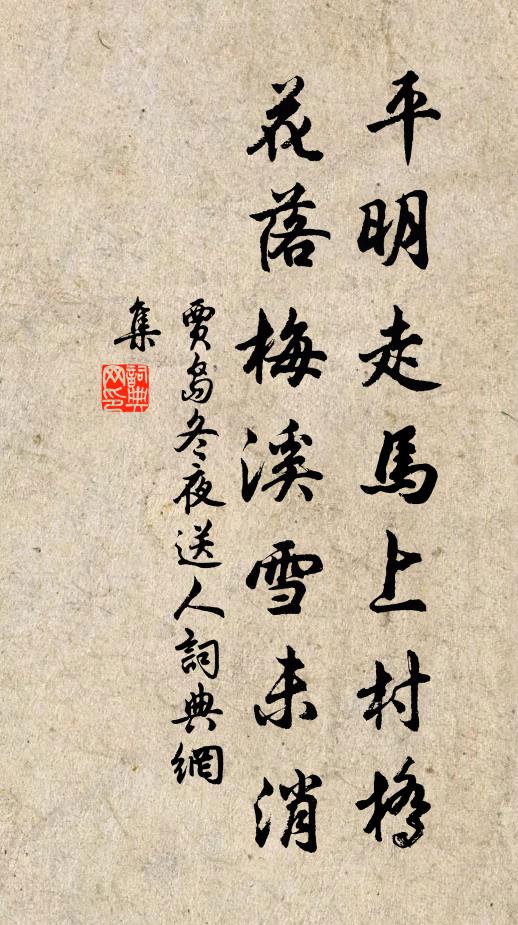 平明走馬上村橋
花落梅溪雪未消
賈島冬夜送人詞典網
集
詞典網印